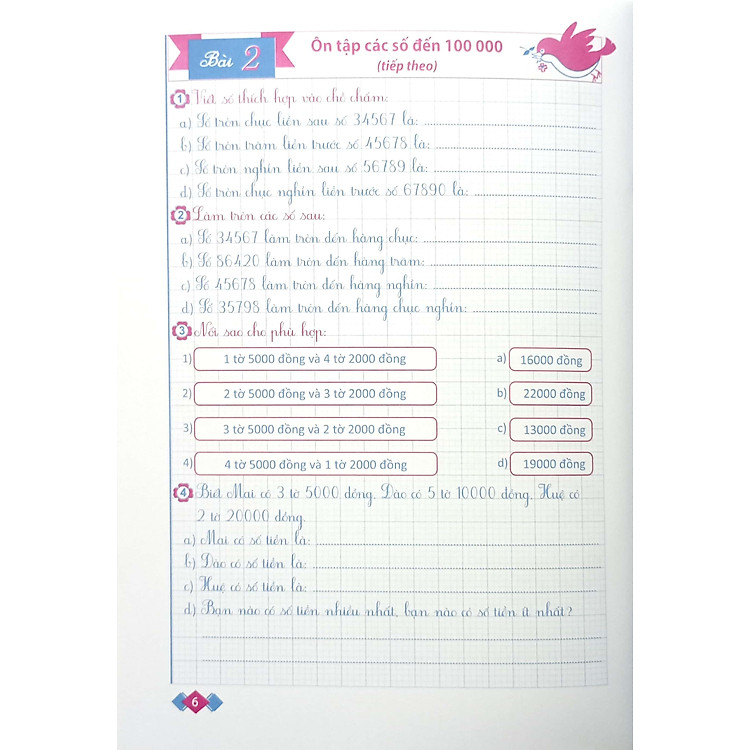 Bài 2
Ôn tập các số đến 100 000
(tiếp theo)
1 Viết số thích hợp vào chỗ chấm:
a) Số tròn chục liền sau số 34567 là:
b) Số tròn trăm liền trước số 45678 là:
c) Số tròn nghìn liền sau số 56789 là:
d) Số tròn chục nghìn liền trước số 67890 là:
2 Làm tròn các số sau:
a) Số 34567 làm tròn đến hàng chục:
b) Số 86420 làm tròn đến hàng trăm:
c) Số 45678 làm tròn đến hàng nghìn:
d) Số 35798 làm tròn đến hàng chục nghìn:
3 Nối sao cho phù hợp:
1) 1 tờ 5000 đồng và 4 tờ 2000 đồng a) 16000 đồng
2) 2 tờ 5000 đồng và 3 tờ 2000 đồng b) 22000 đồng
3) 3 tờ 5000 đồng và 2 tờ 2000 đồng c) 13000 đồng
4) 4 tờ 5000 đồng và 1 tờ 2000 đồng d) 19000 đồng
4 Biết Mai có 3 tờ 5000 đồng, Đào có 5 tờ 10000 đồng, Huệ có
2 tờ 20000 đồng.
a) Mai có số tiền là:
b) Đào có số tiền là:
c) Huệ có số tiền là:
d) Bạn nào có số tiền nhiều nhất, bạn nào có số tiền ít nhất?
6